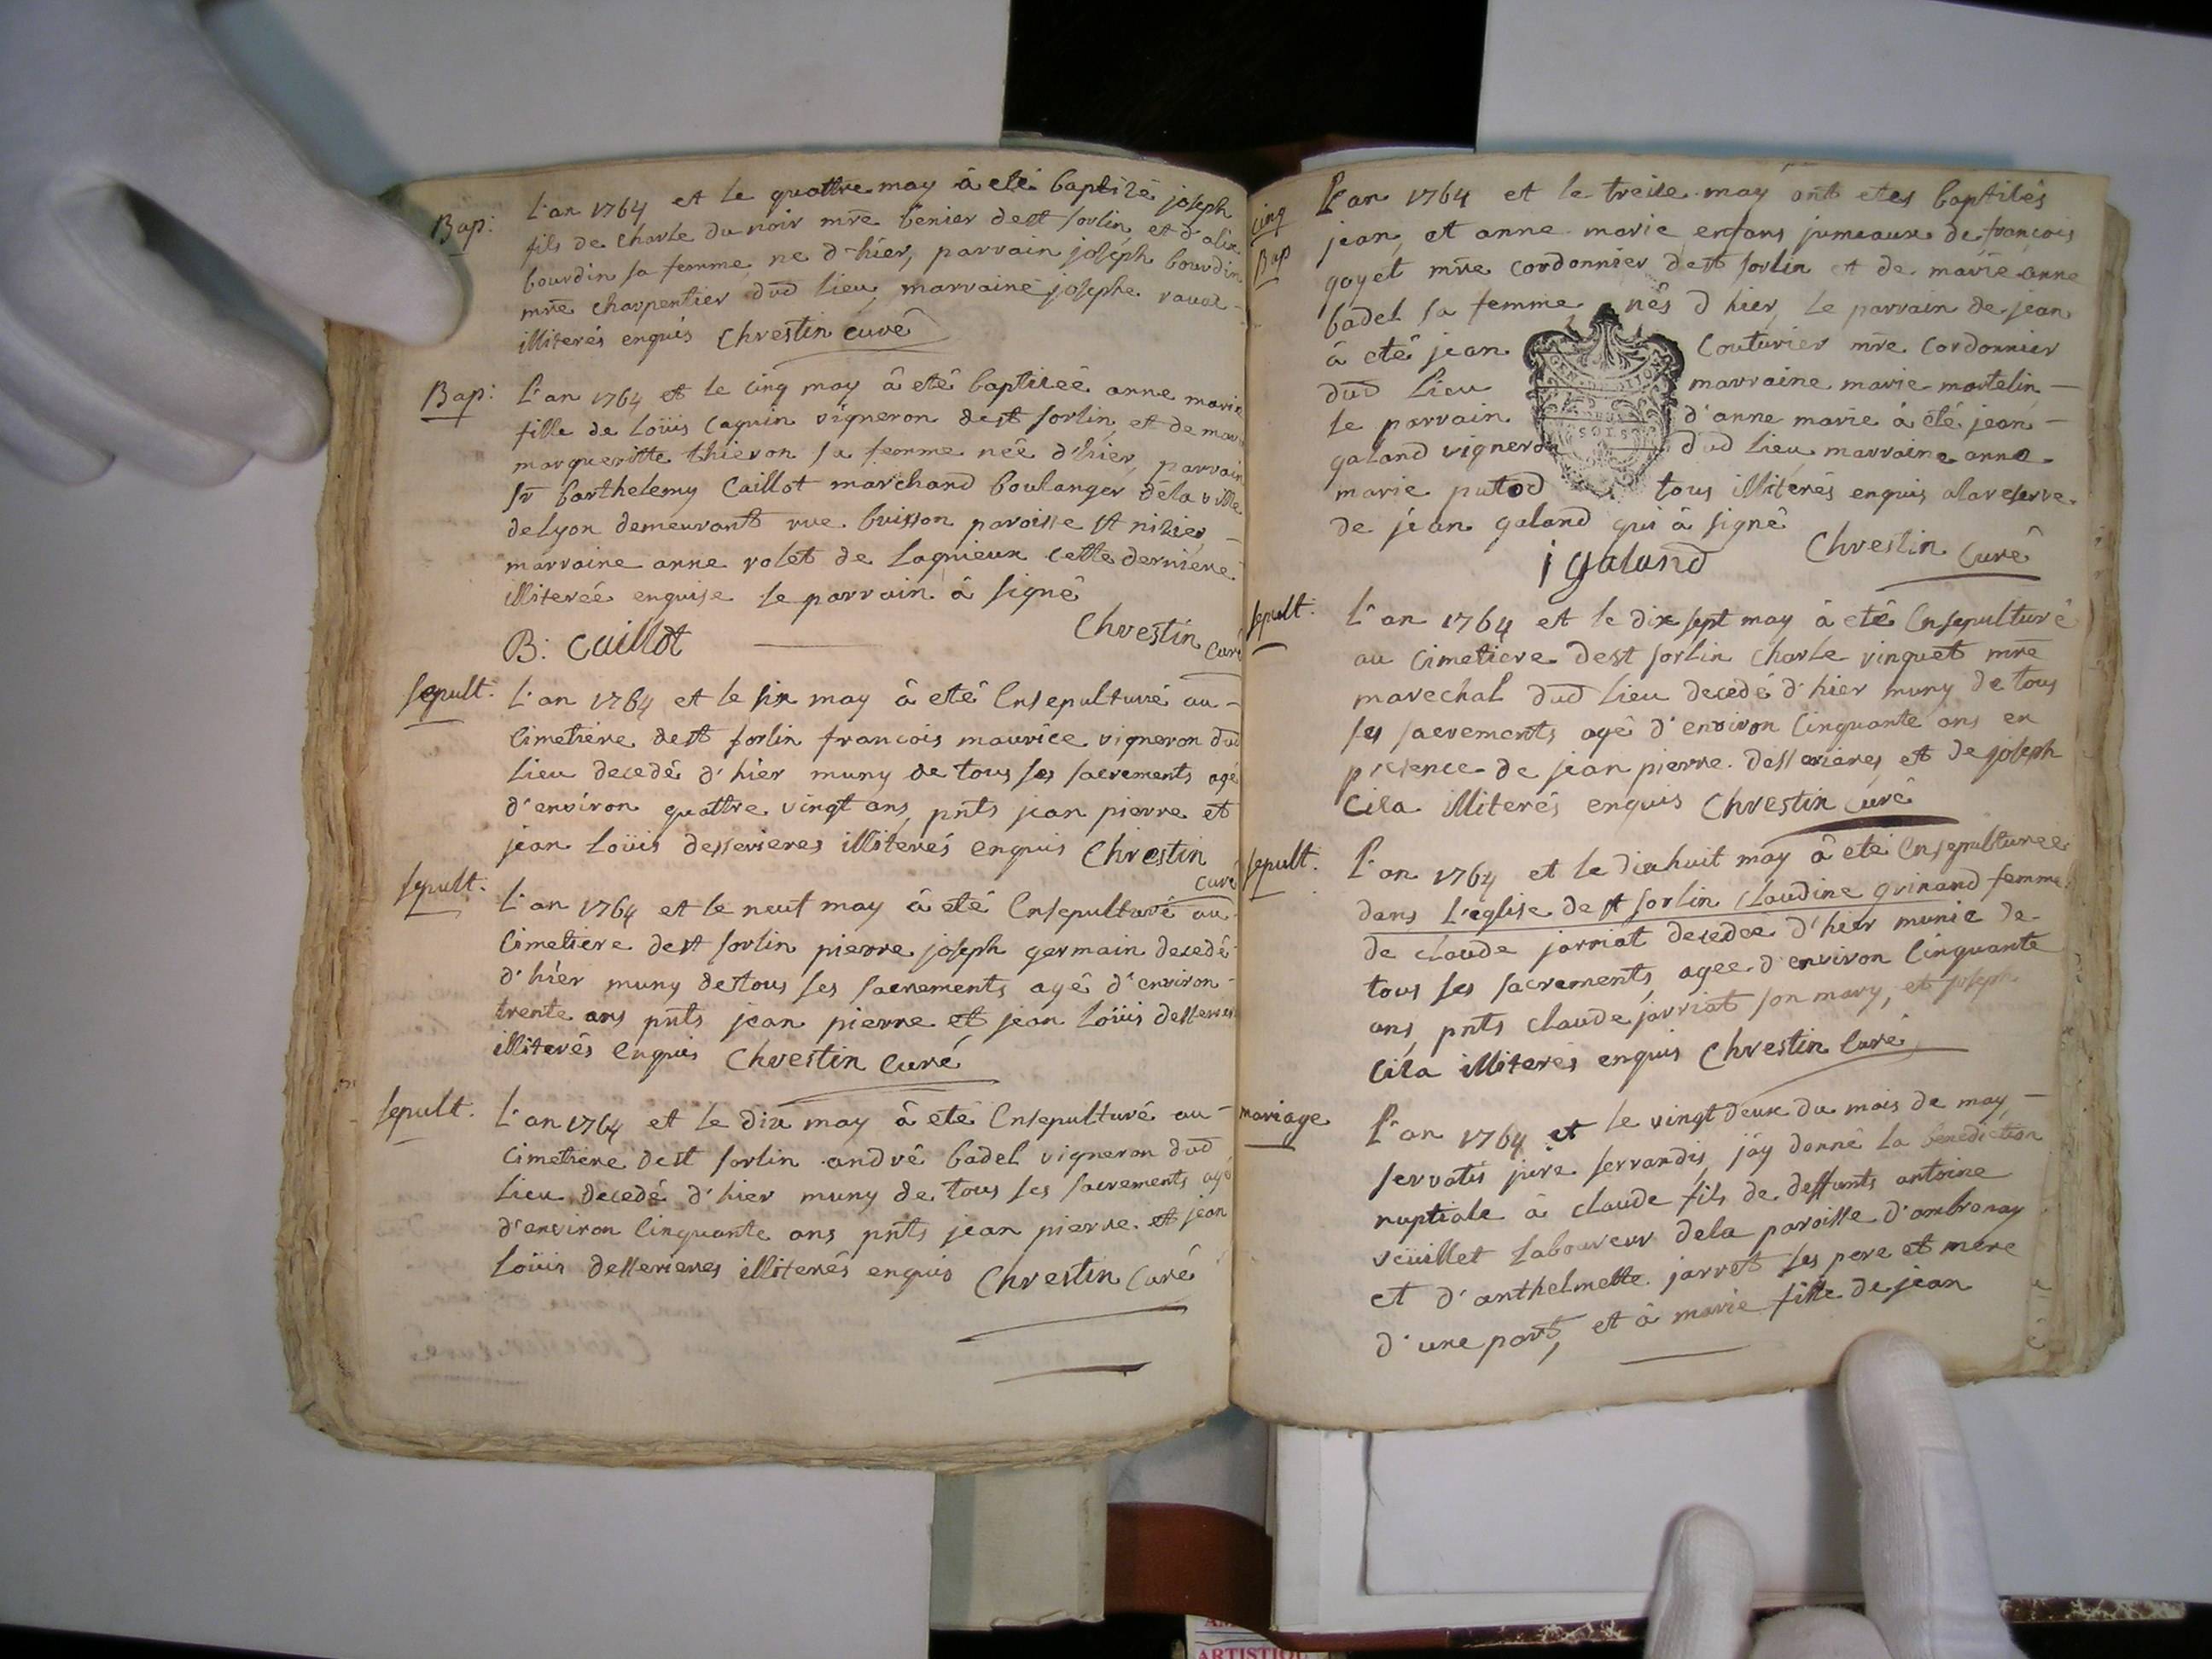 Bap: L'an 1764 et le quattre may à eté baptizé joseph
fils de Charle du noir mre bénier dest sorlin et d'alix
bourdin sa femme ne d'hier, parrain joséph bourdin
mre charpentier dud lieu, marraine josephe raval
illiterés enquis Chrestin curé
Bap: L'an 1764 et le cinq may â eté baptiseé anne marie
fille de Loüis Caquin vigneron dest sorlin, et de
margueritte thieron sa femme née d'hier, parrain
sr barthelemy Caillot marchand boulanger dela ville
de Lyon demeurant rue buisson paroisse st nizier
marraine anne rolet de Lagnieux cette derniere
illitereé enquise le parrain â signé
B: Caillot Chrestin curé
sepult: L'an 1764 et le six may â eté Ensepulturé au
Cimetiere dest sorlin francois maurice vigneron dud
lieu decedé d'hier muny de tous ses sacrements agé
d'environ quattre vingt ans, pnts jean pierre et
jean Loüis desserieres illiterés enquis Chrestin
curé
sepult: L'an 1764 et le neuf may â eté Ensepulturé au
Cimetiere dest sorlin pierre joseph germain decedé
d'hier muny de tous ses sacrements agé d'environ
trente ans pnts jean pierre et jean Loüis
illiterés Enquis Chrestin Curé
sepult. L'an 1764 et le dix may â eté Ensepulturé au
Cimetiere dest sorlin andré badel vigneron dud
lieu decedé d'hier muny de tous ses sacrements agé
d'environ Cinquante ans pnts jean pierre et jean
Loüis desserieres illiterés enquis Chrestin Curé
cinq
Bap
L'an 1764 et le treize may ont etes baptisés
jean, et anne marie enfans jumeaux de francois
goyet mre cordonnier dest sorlin et de marie anne
badel sa femme nés d hier, le parrain de jean
à eté jean Couturier mre Cordonnier
dud Lieu marraine marie martelin
le parrain d'anne marie à eté jean
galand vigneron dud lieu marraine anne
marie putod tous illiterés enquis alareserve
de jean galand qui â signé
j galand Chrestin Curé
sepult: L'an 1764 et le dix sept may â eté Ensepulturé
au Cimetiere dest sorlin Charle vinquet mre
marechal dud lieu decedé d'hier muny de tous
ses sacrements agé d'environ Cinquante ans en
presence de jean pierre desserieres et de joseph
Cila illiterés enquis Chrestin Curé
sepult. L'an 1764 et le dixhuit may â eté Ensepulturée
dans L'eglise de st sorlin Claudine guinand femme
de claude jarriat decedeé d'hier munie de
tous ses sacrements, ageé d'environ Cinquante
ans, pnts claude jarriat son mary, et joseph
Cila illiterés enquis Chrestin Curé
mariage L'an 1764 et le vingt deux du mois de may
servatis jure servandis, jáy donné la benediction
nuptiale â claude fils de deffunts antoine
veüillet Laboureur dela paroisse d'ambronay
et d'anthelmette jarret ses pere et mere
d'une part, et â marie fille de jean
ARTISTIQ